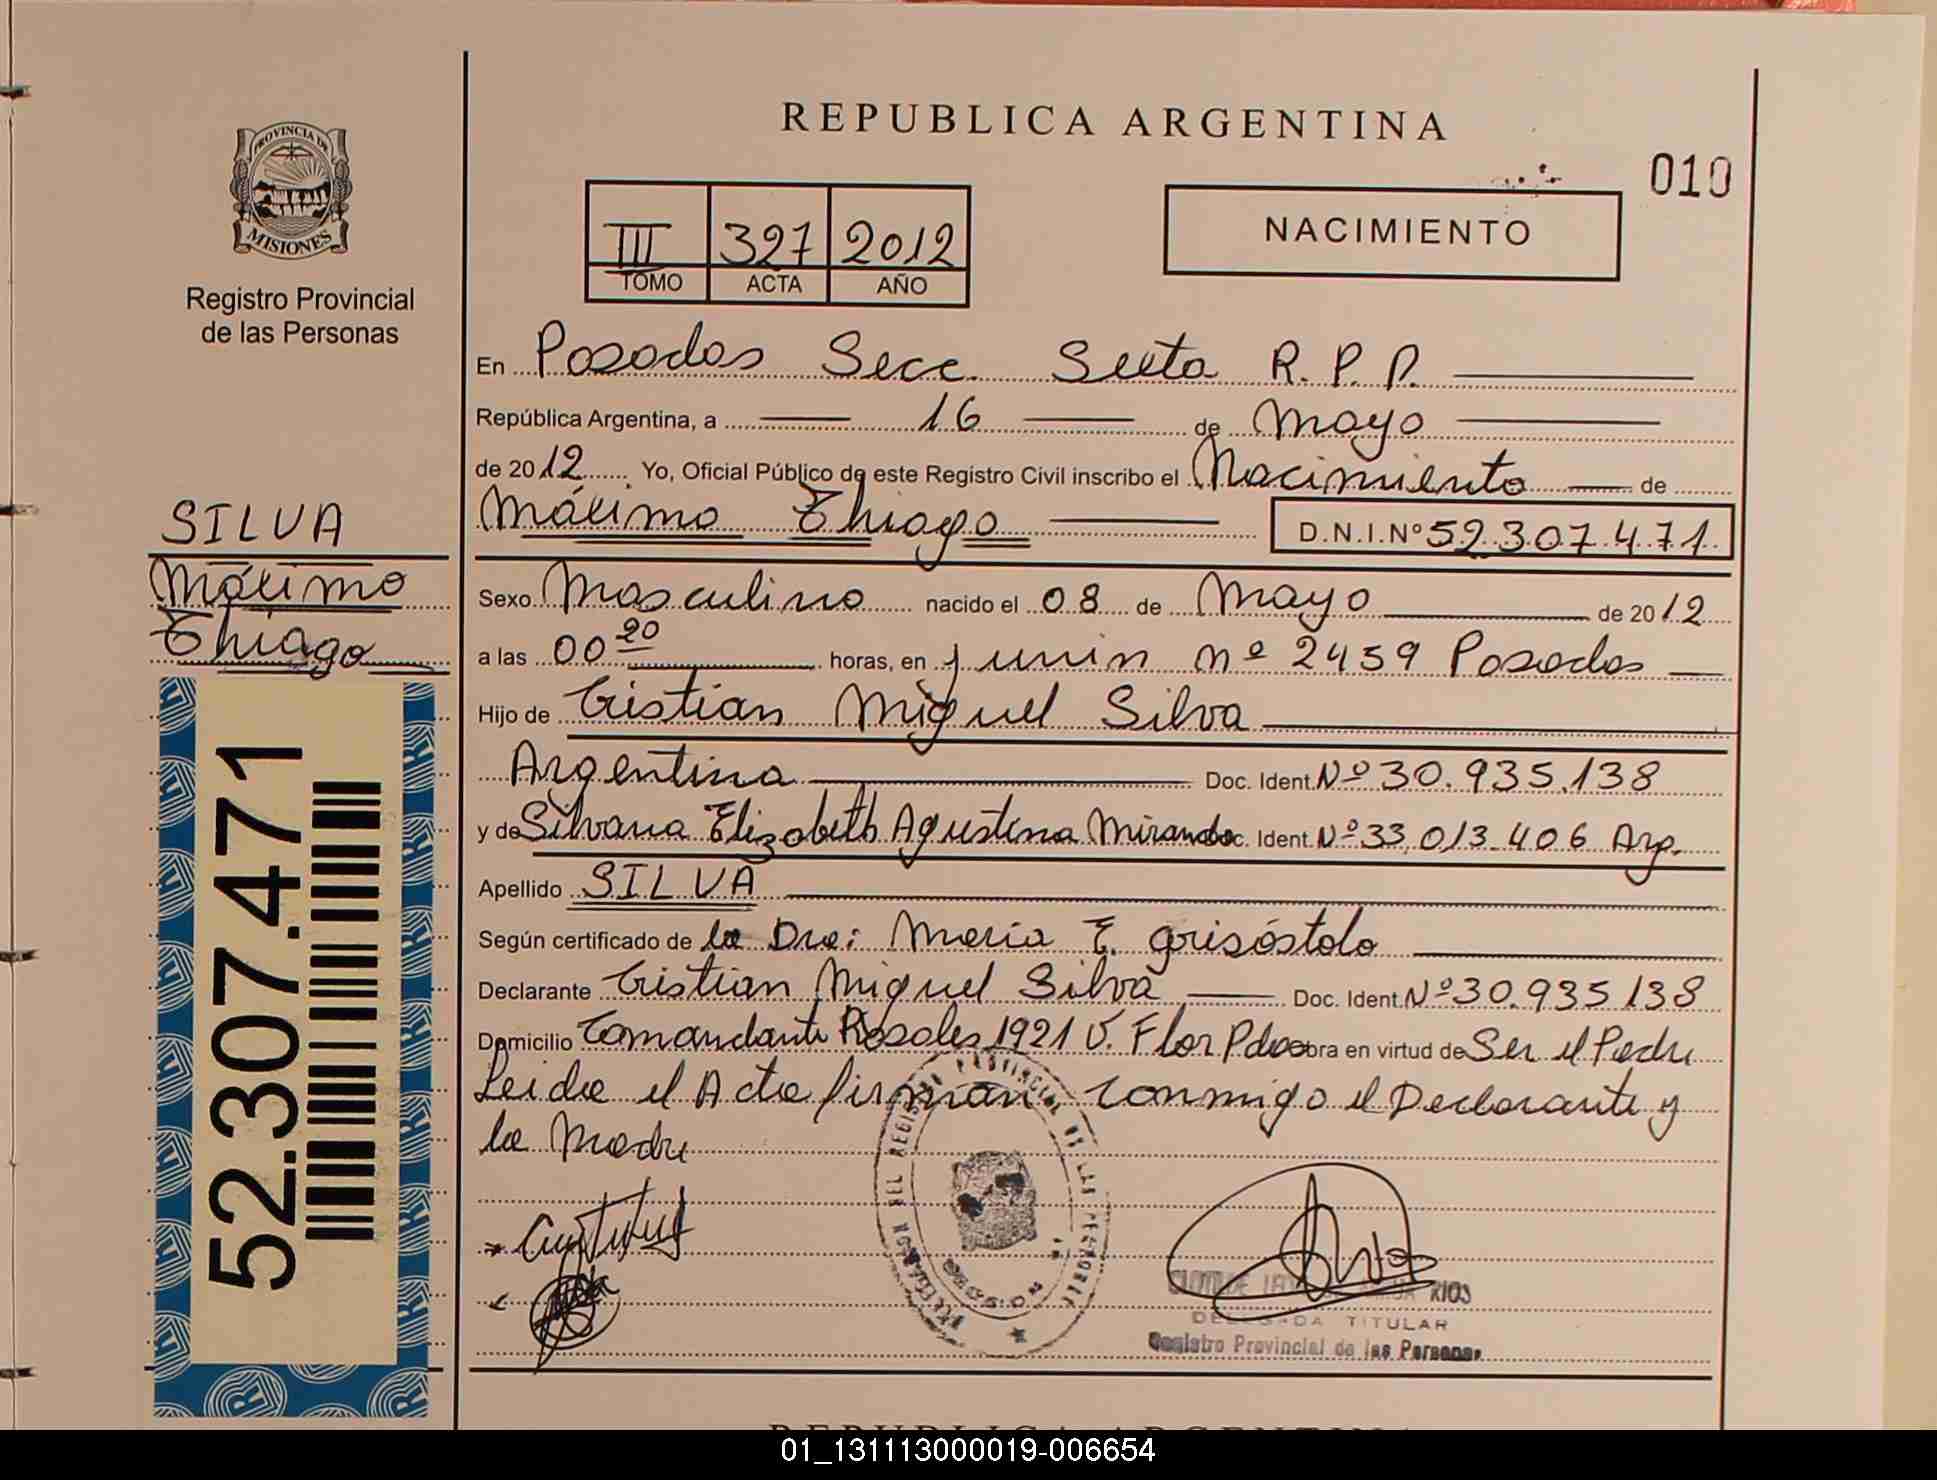 REPUBLICA ARGENTINA
010
PROVINCIA DE
MISIONES
Registro Provincial
de las Personas
III 327 2012
TOMO ACTA AÑO
NACIMIENTO
En Posadas Secc. Sexta R.P.P.
República Argentina, a 16 de Mayo
de 2012 Yo, Oficial Público de este Registro Civil inscribo el Nacimiento de
Máximo Thiago D.N.I.Nº 52.307.471
SILVA
Máximo
Thiago
52.307.471
Sexo Masculino nacido el 08 de Mayo de 2012
a las 00 20 horas, en Junin Nº 2459 Posadas
Hijo de Cristian Miguel Silva
Argentina Doc. Ident. Nº 30.935.138
y de Silvana Elizabeth Agustina Miranda Doc. Ident. Nº 33.013.406 Arg.
Apellido SILVA
Según certificado de la Dra: Maria E. Grisóstolo
Declarante Cristian Miguel Silva Doc. Ident. Nº 30.935138
Domicilio Comandante Rosales 1921 V. Flor Pdas obra en virtud de Ser el Padre
Leida el Acta firman conmigo el Declarante y
la Madre
REGISTRO PROVINCIAL DE LAS PERSONAS
RIOS
DELEGADA TITULAR
Registro Provincial de las Personas
REPUBLICA ARGENTINA
01_131113000019-006654